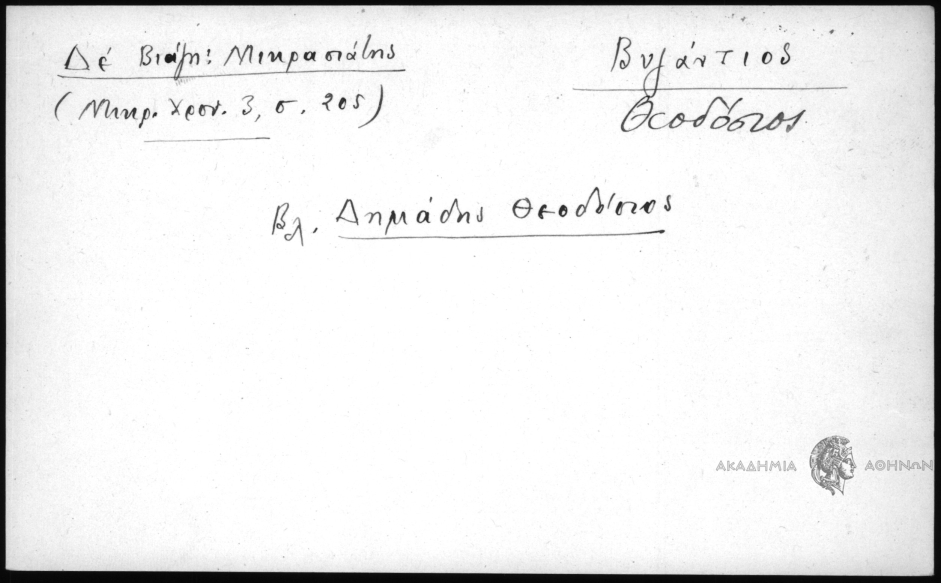 Δέ Βιάζη: Μικρασιάτης
(Μικρ. Χρον. 3, σ. 205)
Βυζάντιος
Θεοδόσιος
Βλ. Δημάδης Θεοδόσιος
ΑΚΑΔΗΜΙΑ ΑΘΗΝΩΝ